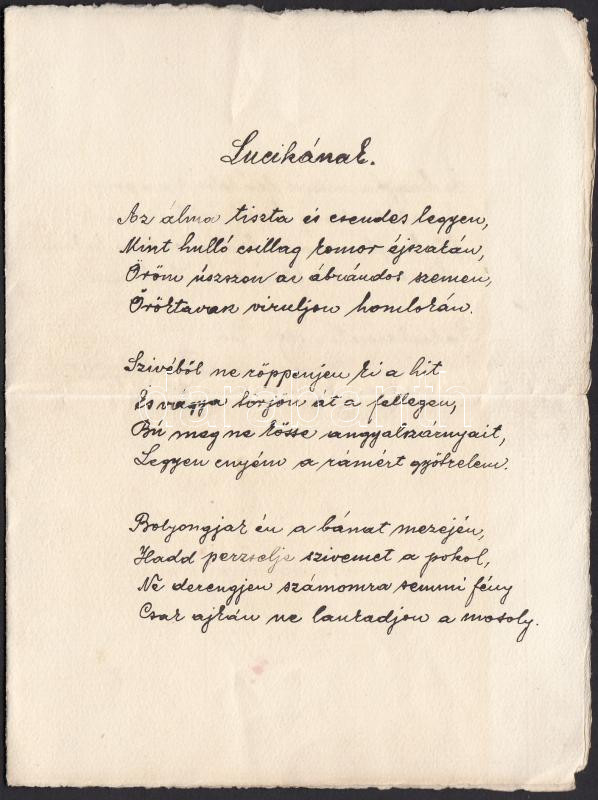 Lucikának.
Az álma tiszta és csendes legyen,
Mint hulló csillag komor éjszakán,
Öröm úszszon az ábrándos szemen,
Öröktavasz viruljon homlokán.
Szivéből ne röppenjen ki a hit
És vágya törjön át a fellegen,
Bú meg ne kösse angyalszárnyait,
Legyen enyém a rámért gyötrelem.
Bolyongjak én a bánat mezején,
Hadd perzselje szivemet a pokol,
Ne derengjen számomra semmi fény
Csak ajkán ne lankadjon a mosoly.